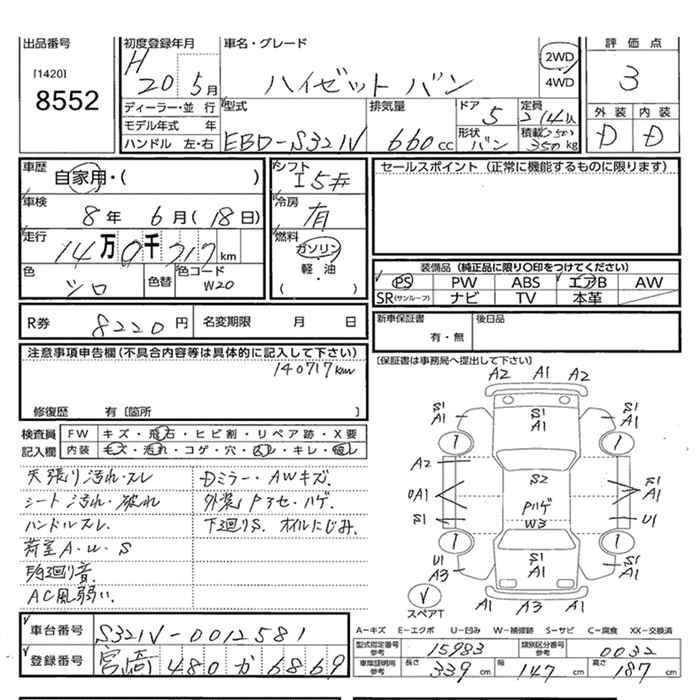 出品番号 初度登録年月 車名・グレード 評価点
[1420] H 20年 5月 ハイゼット バン 2WD 3
8552 4WD
ディーラー・並行 型式 排気量 ドア 5 定員 2/4人 外装 内装
モデル年式 年 EBD-S321V 660cc 形状 バン 積載 250 350kg D D
ハンドル 左・右
車歴 自家用・( ) シフト I5キ セールスポイント (正常に機能するものに限ります)
車検 8年 6月(18日) 冷房 有
走行 14万0千717km 燃料 ガソリン 軽・油 ( )
装備品 (純正品に限り○印をつけてください)
色 シロ 色替 色コード W20 PS PW ABS エアB AW
SR(サンルーフ) ナビ TV 本革
R券 8220円 名変期限 月 日 新車保証書 有・無 後日品
注意事項申告欄(不具合内容等は具体的に記入して下さい) [保証書は事務局へ提出して下さい]
140717km
修復歴 有[箇所 ]
検査員 FW キズ・飛石・ヒビ割・リペア跡・X要
記入欄 内装 キズ・汚れ・コゲ・穴・ ・キレ・
天張り汚れ・スレ Dミラー・AWキズ.
シート汚れ・破れ 外装Pヨセ・ハゲ.
ハンドルスレ. 下廻りS. オイルにじみ.
荷室A・U・S
廻り音.
AC風弱い.
A2 A1 A2
S1 A1 S1 A1 S1 A1
A2 S2
UA1 Pハゲ S1 A1
S1 W3 U1
U1 A3 S1 A1 S1 A1
A1 A3 A1
スペアT
車台番号 S321V-0012581
A=キズ E=エクボ U=凹み W=補修跡 S=サビ C=腐食 XX=交換済
登録番号 宮崎 480 か 6869
型式指定番号 参考 15983 類別区分番号 参考 0032
車庫証明用 参考 長さ 339cm 幅 147cm 高さ 187cm